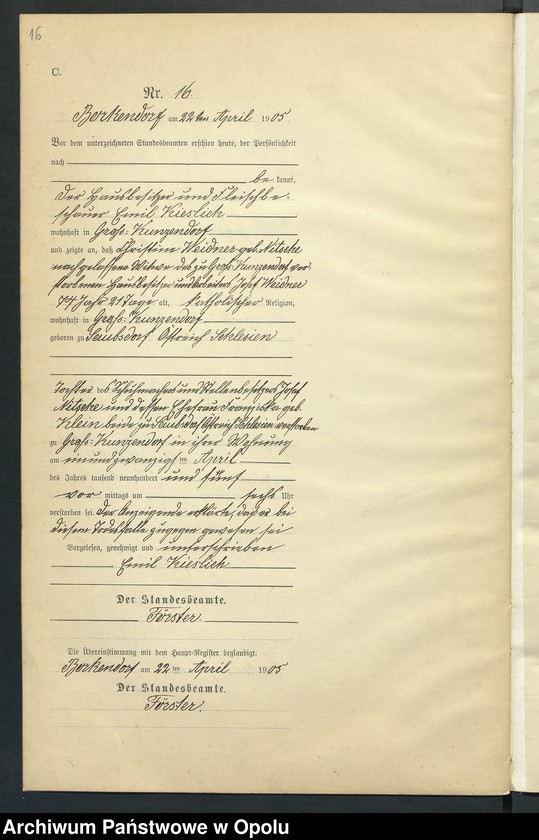 16
C.
Nr. 16.
Borkendorf am 22ten April 1905
Vor dem unterzeichneten Standesbeamten erschien heute, der Persönlichkeit
nach
be kannt,
der Hausbesitzer und Fleischbe-
schauer Emil Kieslich
wohnhaft in Groß-Kunzendorf
und zeigte an, daß Christine Weidner geb. Nitsche
nachgelassene Witwe des zu Groß-Kunzendorf ver-
storbenen Hausbesitzer und Arbeiters Josef Weidner
77 Jahr 21 Tage alt, katholischer Religion,
wohnhaft in Groß-Kunzendorf
geboren zu Saubsdorf Östreich Schlesien
Tochter des Schuhmachers und Stellenbesitzers Josef
Nitsche und dessen Ehefrau Franziska geb.
Klein beide zu Saubsdorf Östreich Schlesien verstorben
zu Groß-Kunzendorf in ihrer Wohnung
am einundzwanzigsten April
des Jahres tausend neunhundert und fünf
vor mittags um sechs Uhr
verstorben sei. Der Anzeigende erklärte, daß er bei
diesem Todesfalle zugegen gewesen sei
Vorgelesen, genehmigt und unterschrieben
Emil Kieslich
Der Standesbeamte.
Förster
Die Übereinstimmung mit dem Haupt-Register beglaubigt.
Borkendorf am 22 ten April 1905
Der Standesbeamte.
Förster.
Archiwum Państwowe w Opolu